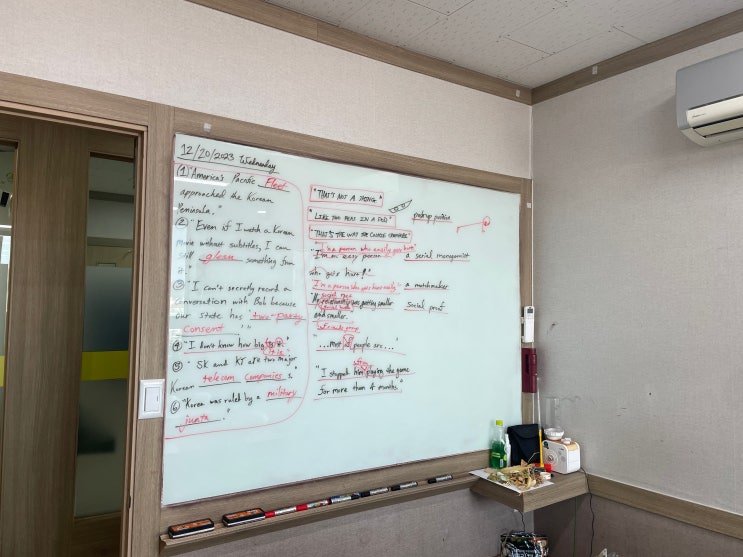 12/20/2023 Wednesday
① "America's Pacific Fleet
approached the Korean
Peninsula."
② "Even if I watch a Korean
movie without subtitles, I can
still glean something from
it."
③ "I can't secretly record a
conversation with Bob because
our state has "two-party
consent"."
④ "I don't know how big it is."
⑤ "SK and KT are two major
Korean telecom companies."
⑥ "Korea was ruled by a military
junta."
"THAT'S NOT A THING"
"LIKE TWO PEAS IN A POD"
"THAT'S THE WAY THE COOKIE CRUMBLES"
"I'm a person who easily gets hurt"
"I'm an easy person
who gets hurt."
"I'm a person who gets hurt easily"
"My getting smaller
and smaller."
"...most of people are..."
"I stopped him playing the game
for more than 4 months."
a serial monogamist
a matchmaker
social proof